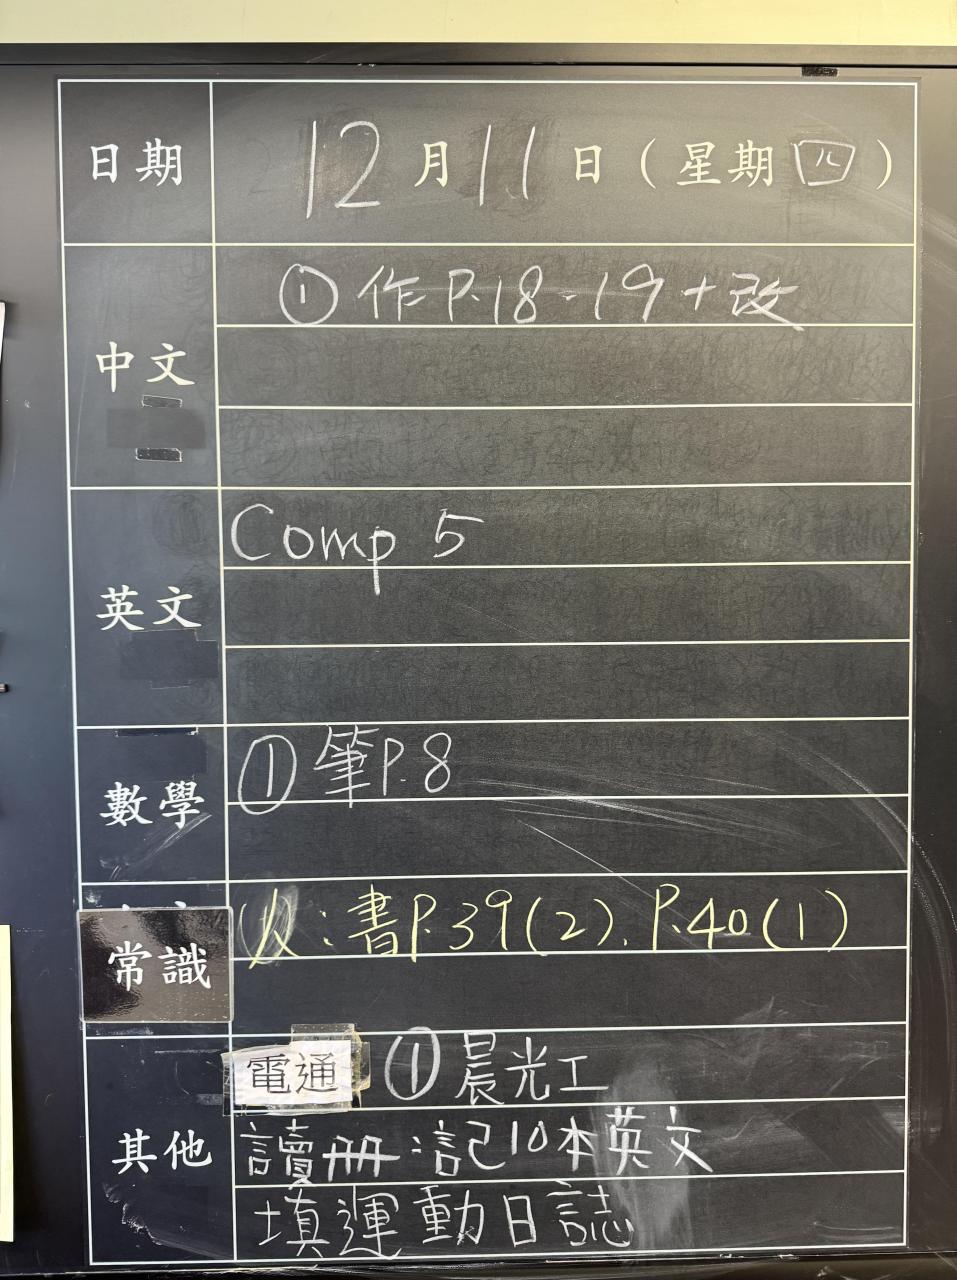 日期 12月11日（星期四）
中文 ①作P.18-19+改
英文 Comp 5
數學 ①筆P.8
常識 :書P.39(2).P.40(1)
電通 ①晨光工
其他 讀冊:記10本英文
填運動日誌